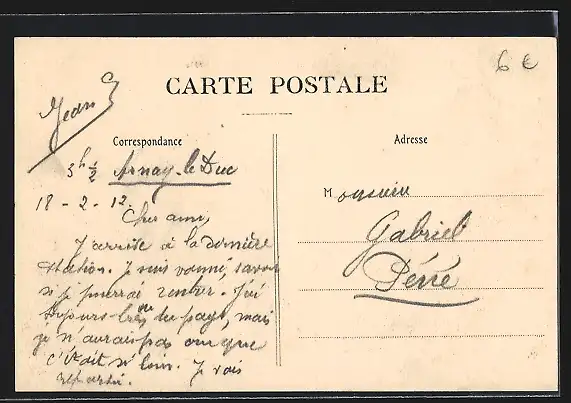 6 €
CARTE POSTALE
Jean
Correspondance
Adresse
3h ½ Arnay-le-Duc
18-2-12.
Cher ami,
J'arrive à la dernière
station. Je suis vanné, savoir
si je pourrai rentrer. J'ai
toujours très vu du pays, mais
je n'aurais pas cru que
c'était si loin. Je vais
repartir.
Monsieur
Gabriel
Péné